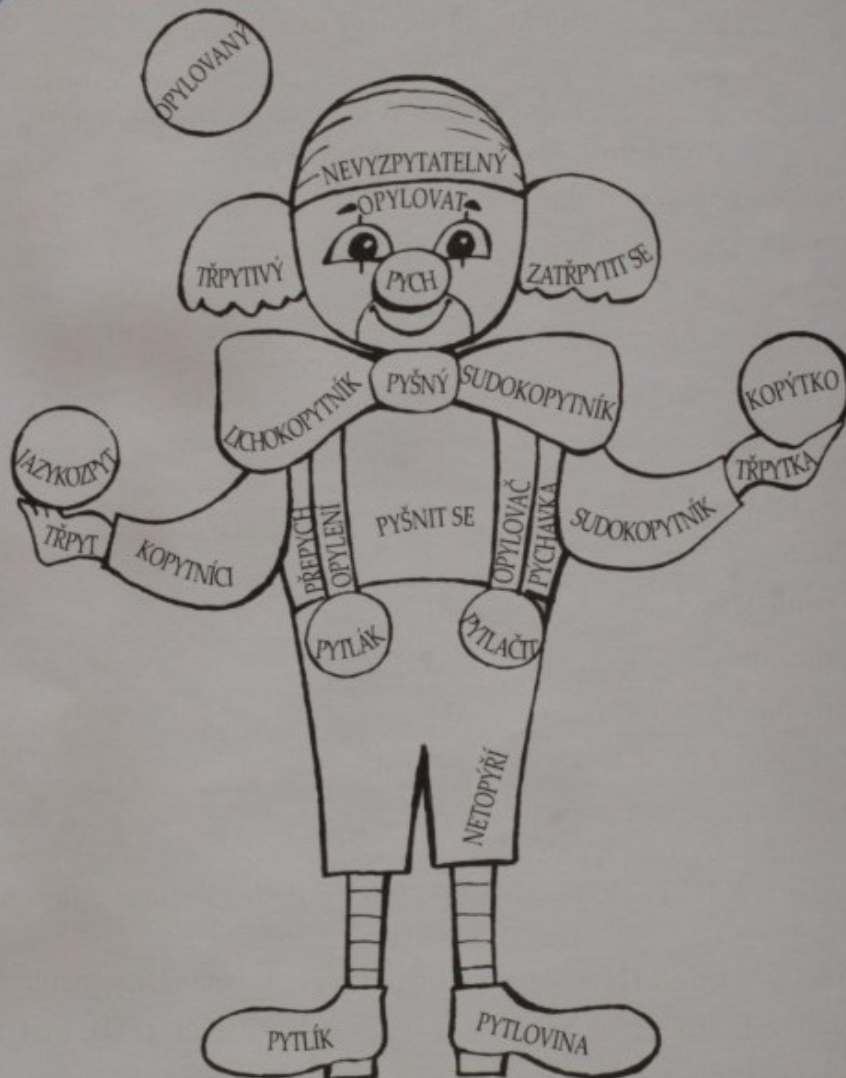 OPYLOVANÝ
NEVYZPYTATELNÝ
OPYLOVAT
TŘPYTIVÝ
PYCH
ZATŘPYTIT SE
LICHOKOPYTNÍK
PYŠNÝ
SUDOKOPYTNÍK
KOPÝTKO
JAZYKOZPYT
TŘPYTKA
TŘPYT
KOPYTNÍCI
PŘEPYCH
OPYLENÍ
PYŠNIT SE
OPYLOVAČ
PÝCHAVKA
SUDOKOPYTNÍK
PYTLÁK
PYTLAČIT
NETOPÝŘÍ
PYTLÍK
PYTLOVINA